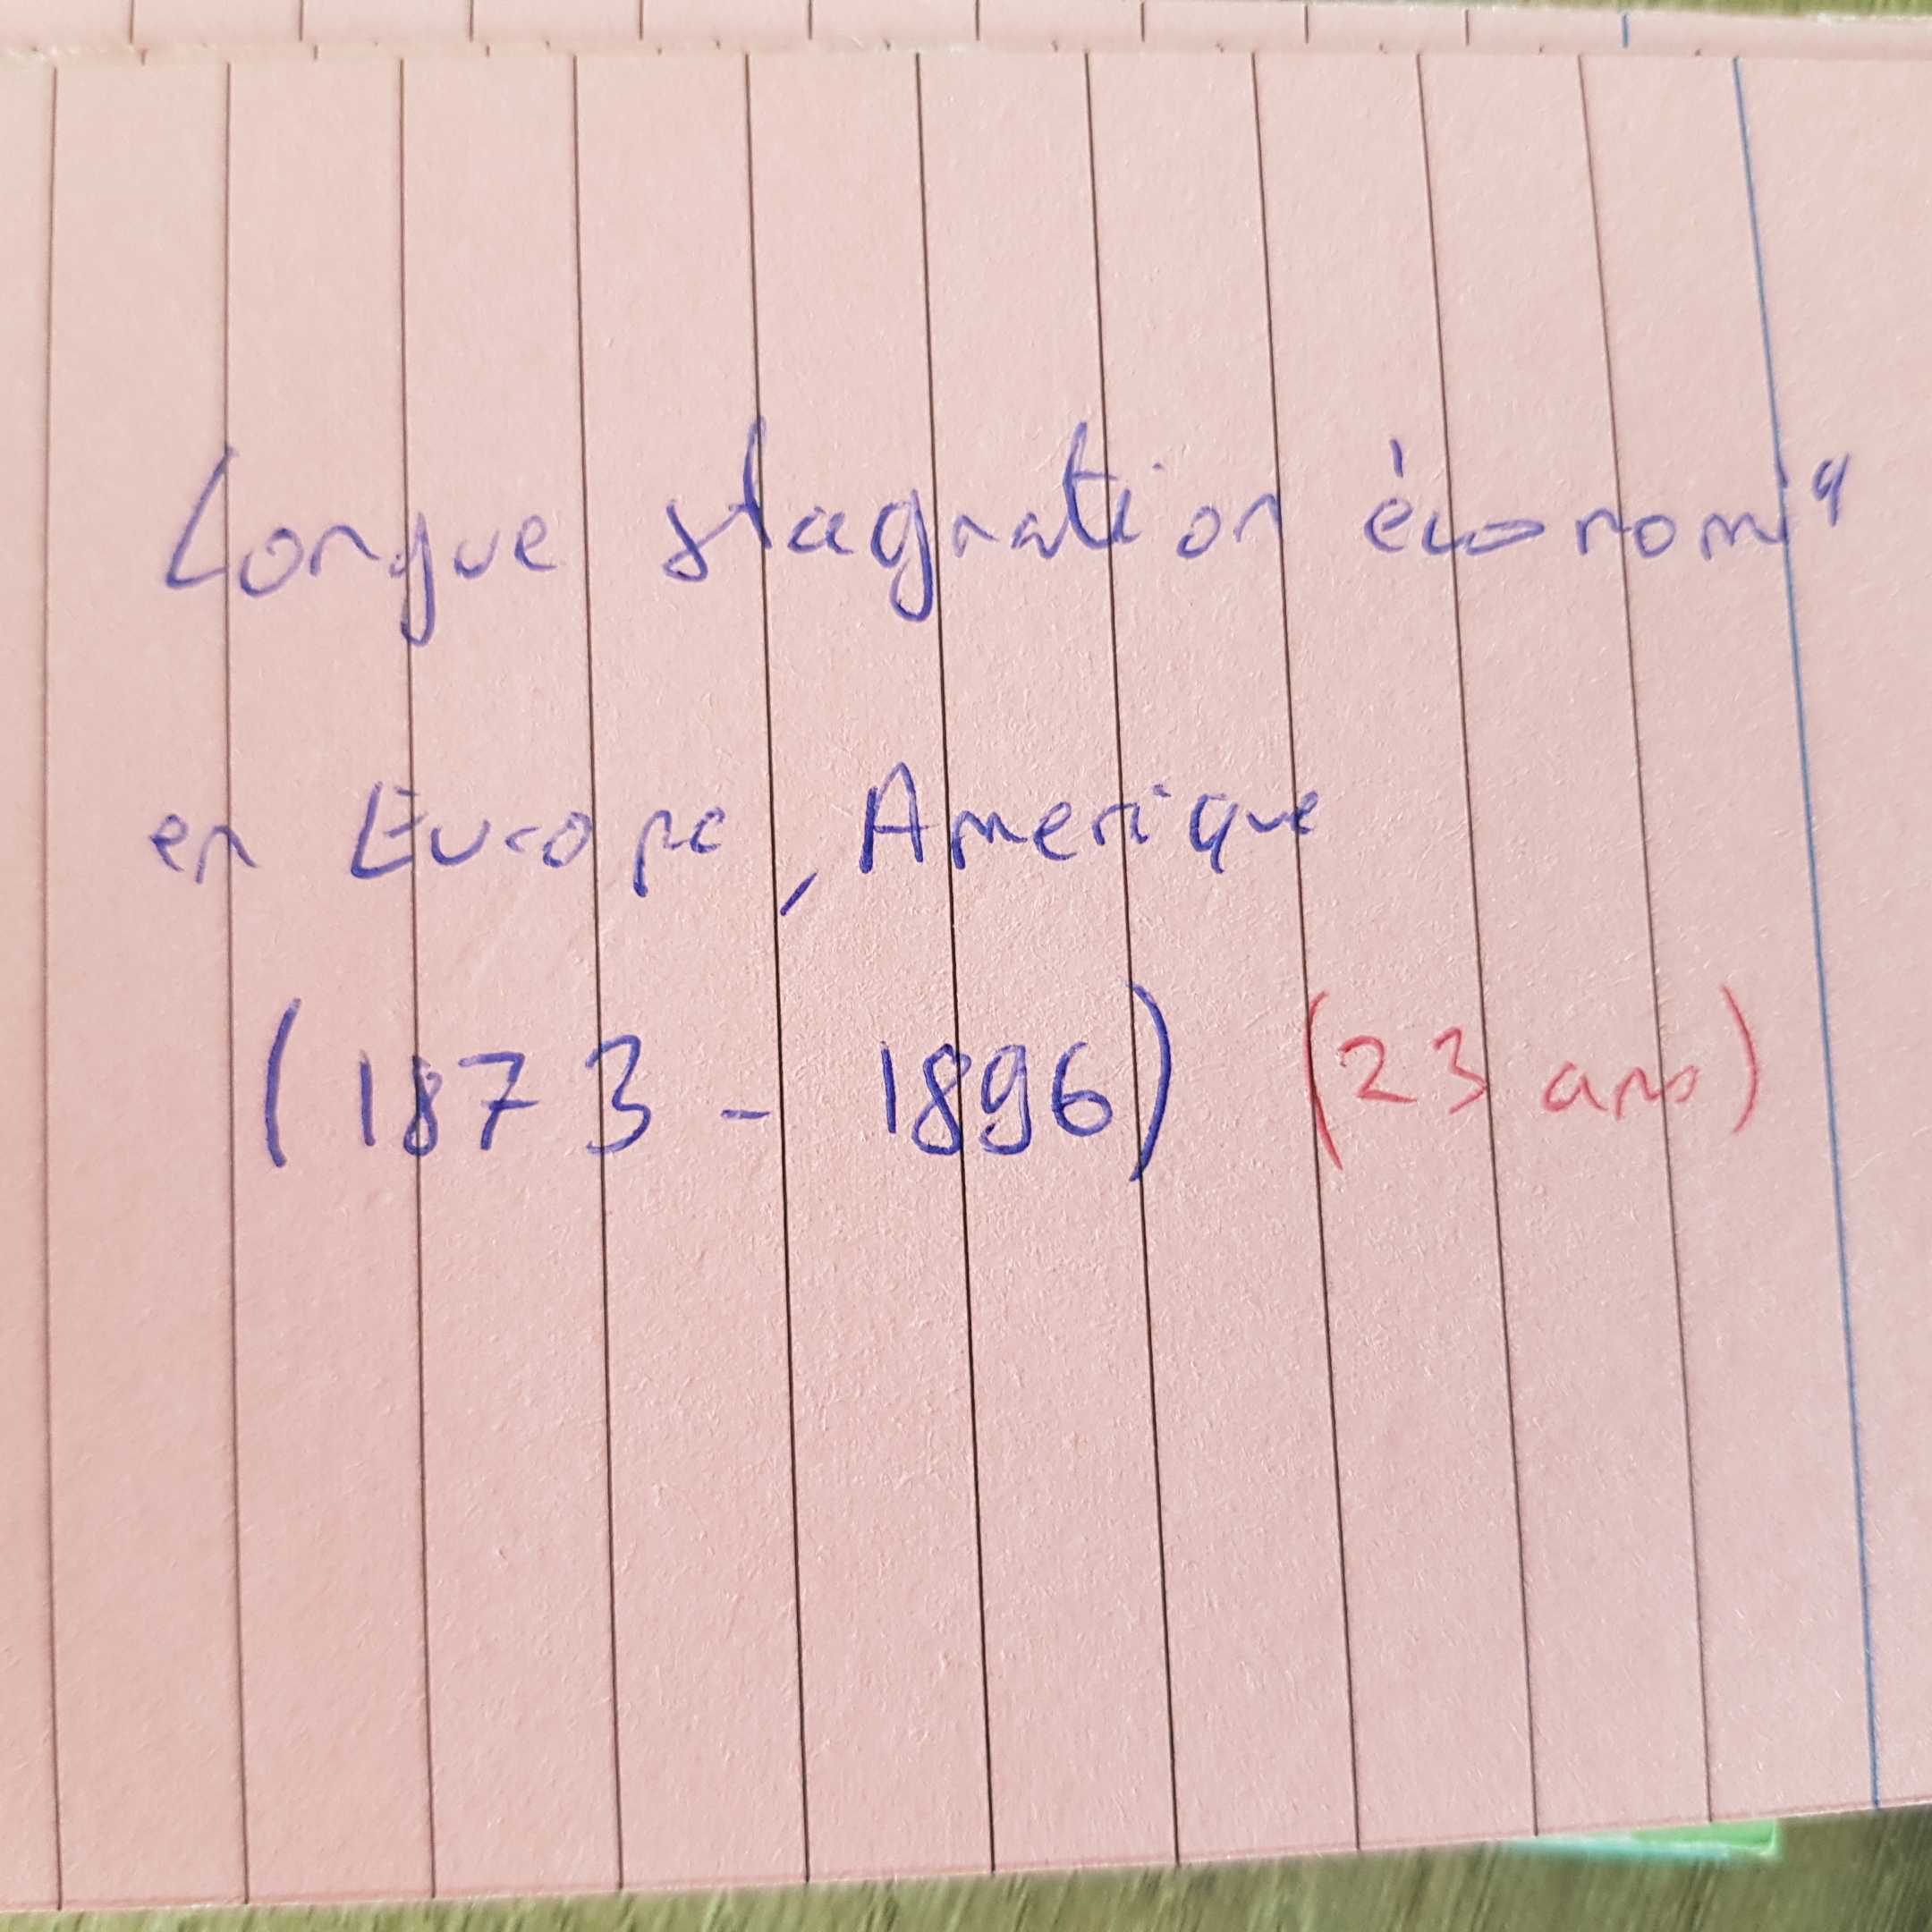 Longue stagnation économiq
en Europe, Amerique
(1873 - 1896) (23 ans)